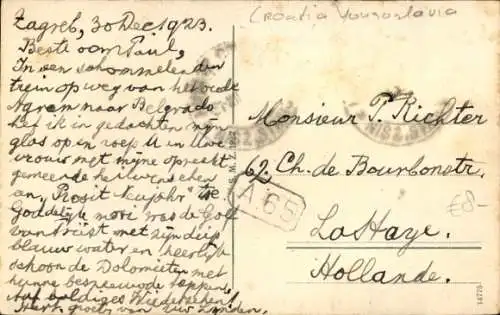 Croatia Yougoslavia
Zagreb, 30 Dec. 1923.
Beste oom Paul,
In een schommelenden
trein op weg van het oude
Agram naar Belgrado
hef ik in gedachten mijn
glas op en roep U en Uwe
vrouw met mijne oprecht
gemeende heilwenschen
an, "Prosit Neujahr" toe
Goddelijk mooi was de Golf
van Triëst met zijn diep
blauw water en heerlijk
schoon de Dolomieten met
hunne besneeuwde toppen.
Auf baldiges Wiedersehen!
Hart. groeten van uw
Monsieur P. Richter
62, Ch. de Bourbonstr.
La Haye.
Hollande.
A 65
S.M.Z. 1922
NISZ
€8-
14775